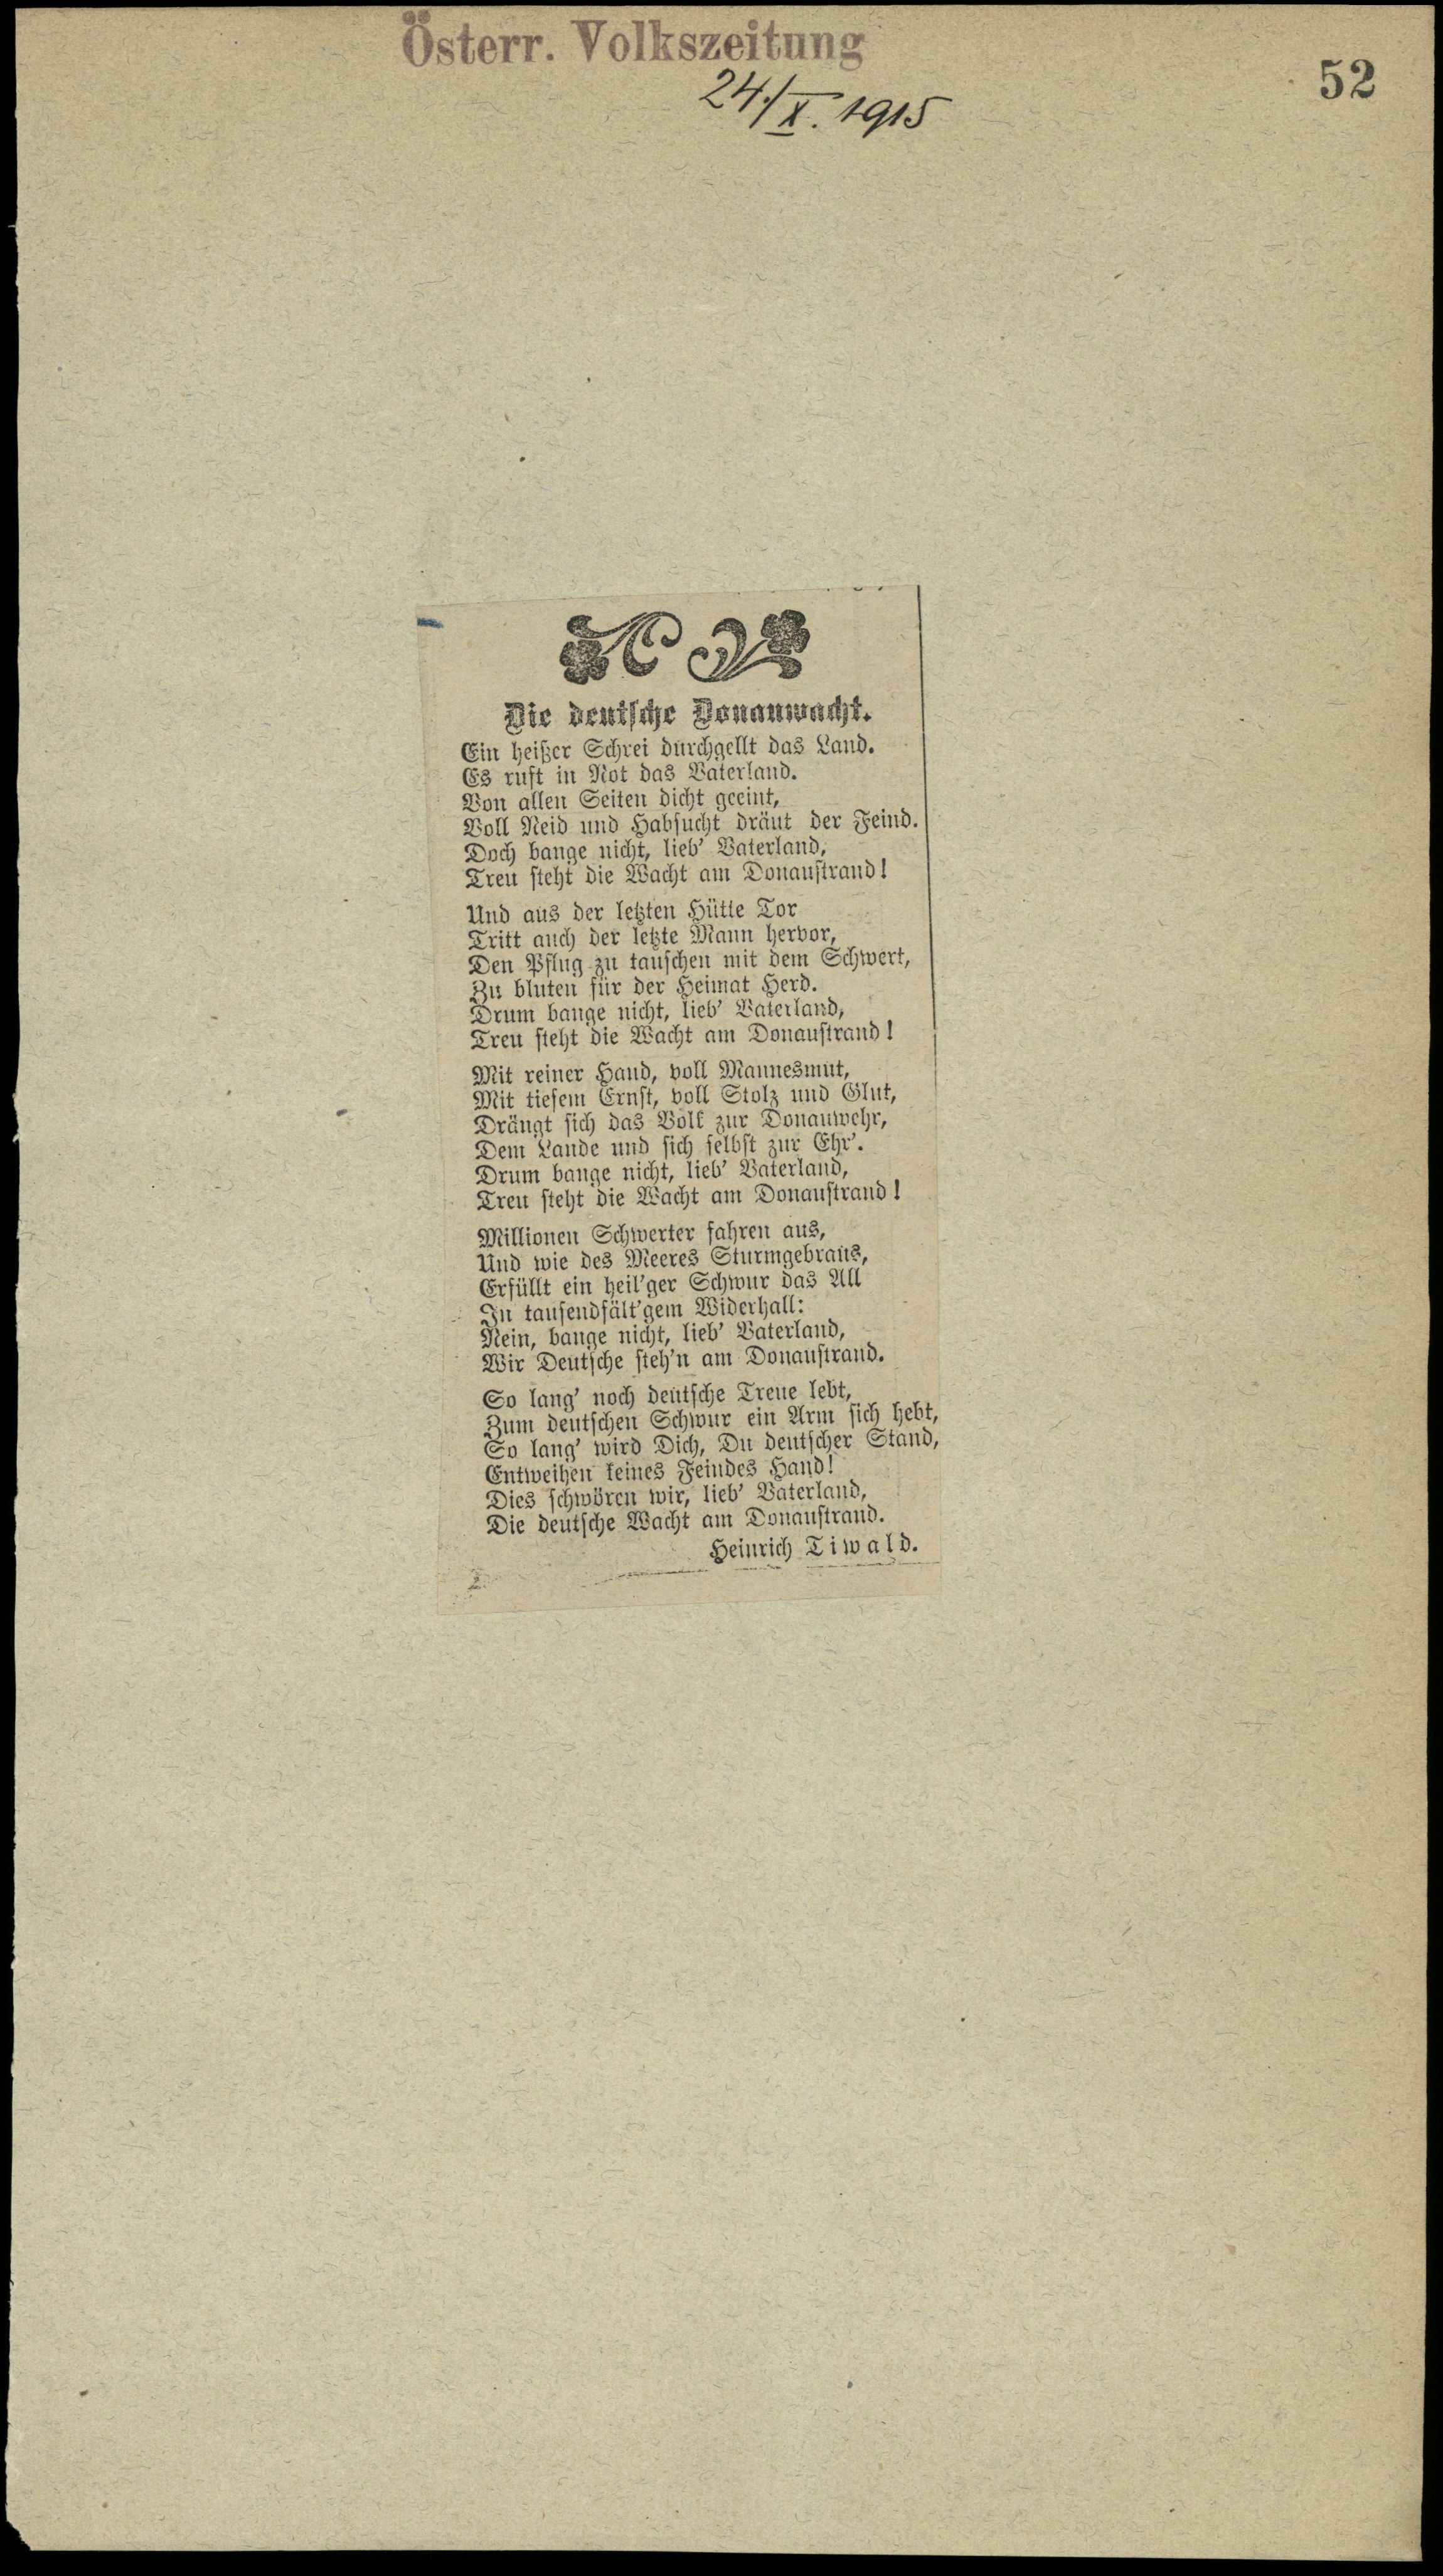 Österr. Volkszeitung
24./X. 1915
52
Die deutsche Donauwacht.
Ein heißer Schrei durchgellt das Land.
Es ruft in Not das Vaterland.
Von allen Seiten dicht geeint,
Voll Neid und Habsucht dräut der Feind.
Doch bange nicht, lieb' Vaterland,
Treu steht die Wacht am Donaustrand!
Und aus der letzten Hütte Tor
Tritt auch der letzte Mann hervor,
Den Pflug zu tauschen mit dem Schwert,
Zu bluten für der Heimat Herd.
Drum bange nicht, lieb' Vaterland,
Treu steht die Wacht am Donaustrand!
Mit reiner Hand, voll Mannesmut,
Mit tiefem Ernst, voll Stolz und Glut,
Drängt sich das Volk zur Donauwehr,
Dem Lande und sich selbst zur Ehr'.
Drum bange nicht, lieb' Vaterland,
Treu steht die Wacht am Donaustrand!
Millionen Schwerter fahren aus,
Und wie des Meeres Sturmgebraus,
Erfüllt ein heil'ger Schwur das All
In tausendfält'gem Widerhall:
Nein, bange nicht, lieb' Vaterland,
Wir Deutsche steh'n am Donaustrand.
So lang' noch deutsche Treue lebt,
Zum deutschen Schwur ein Arm sich hebt,
So lang' wird Dich, Du deutscher Stand,
Entweihen keines Feindes Hand!
Dies schwören wir, lieb' Vaterland,
Die deutsche Wacht am Donaustrand.
Heinrich Tiwald.